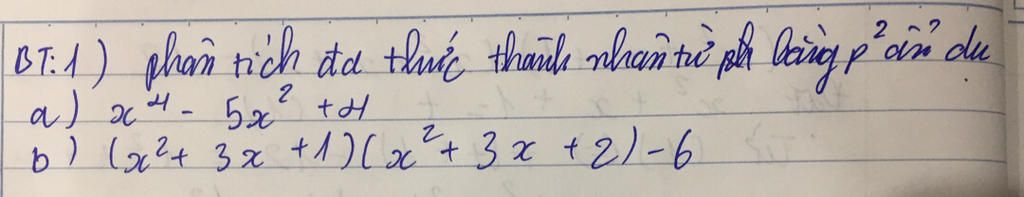 BT:1) phân tích đa thức thành nhân tử bằng p² ẩn du
a) x⁴ - 5x² + 4
b) (x² + 3x + 1)(x² + 3x + 2) - 6